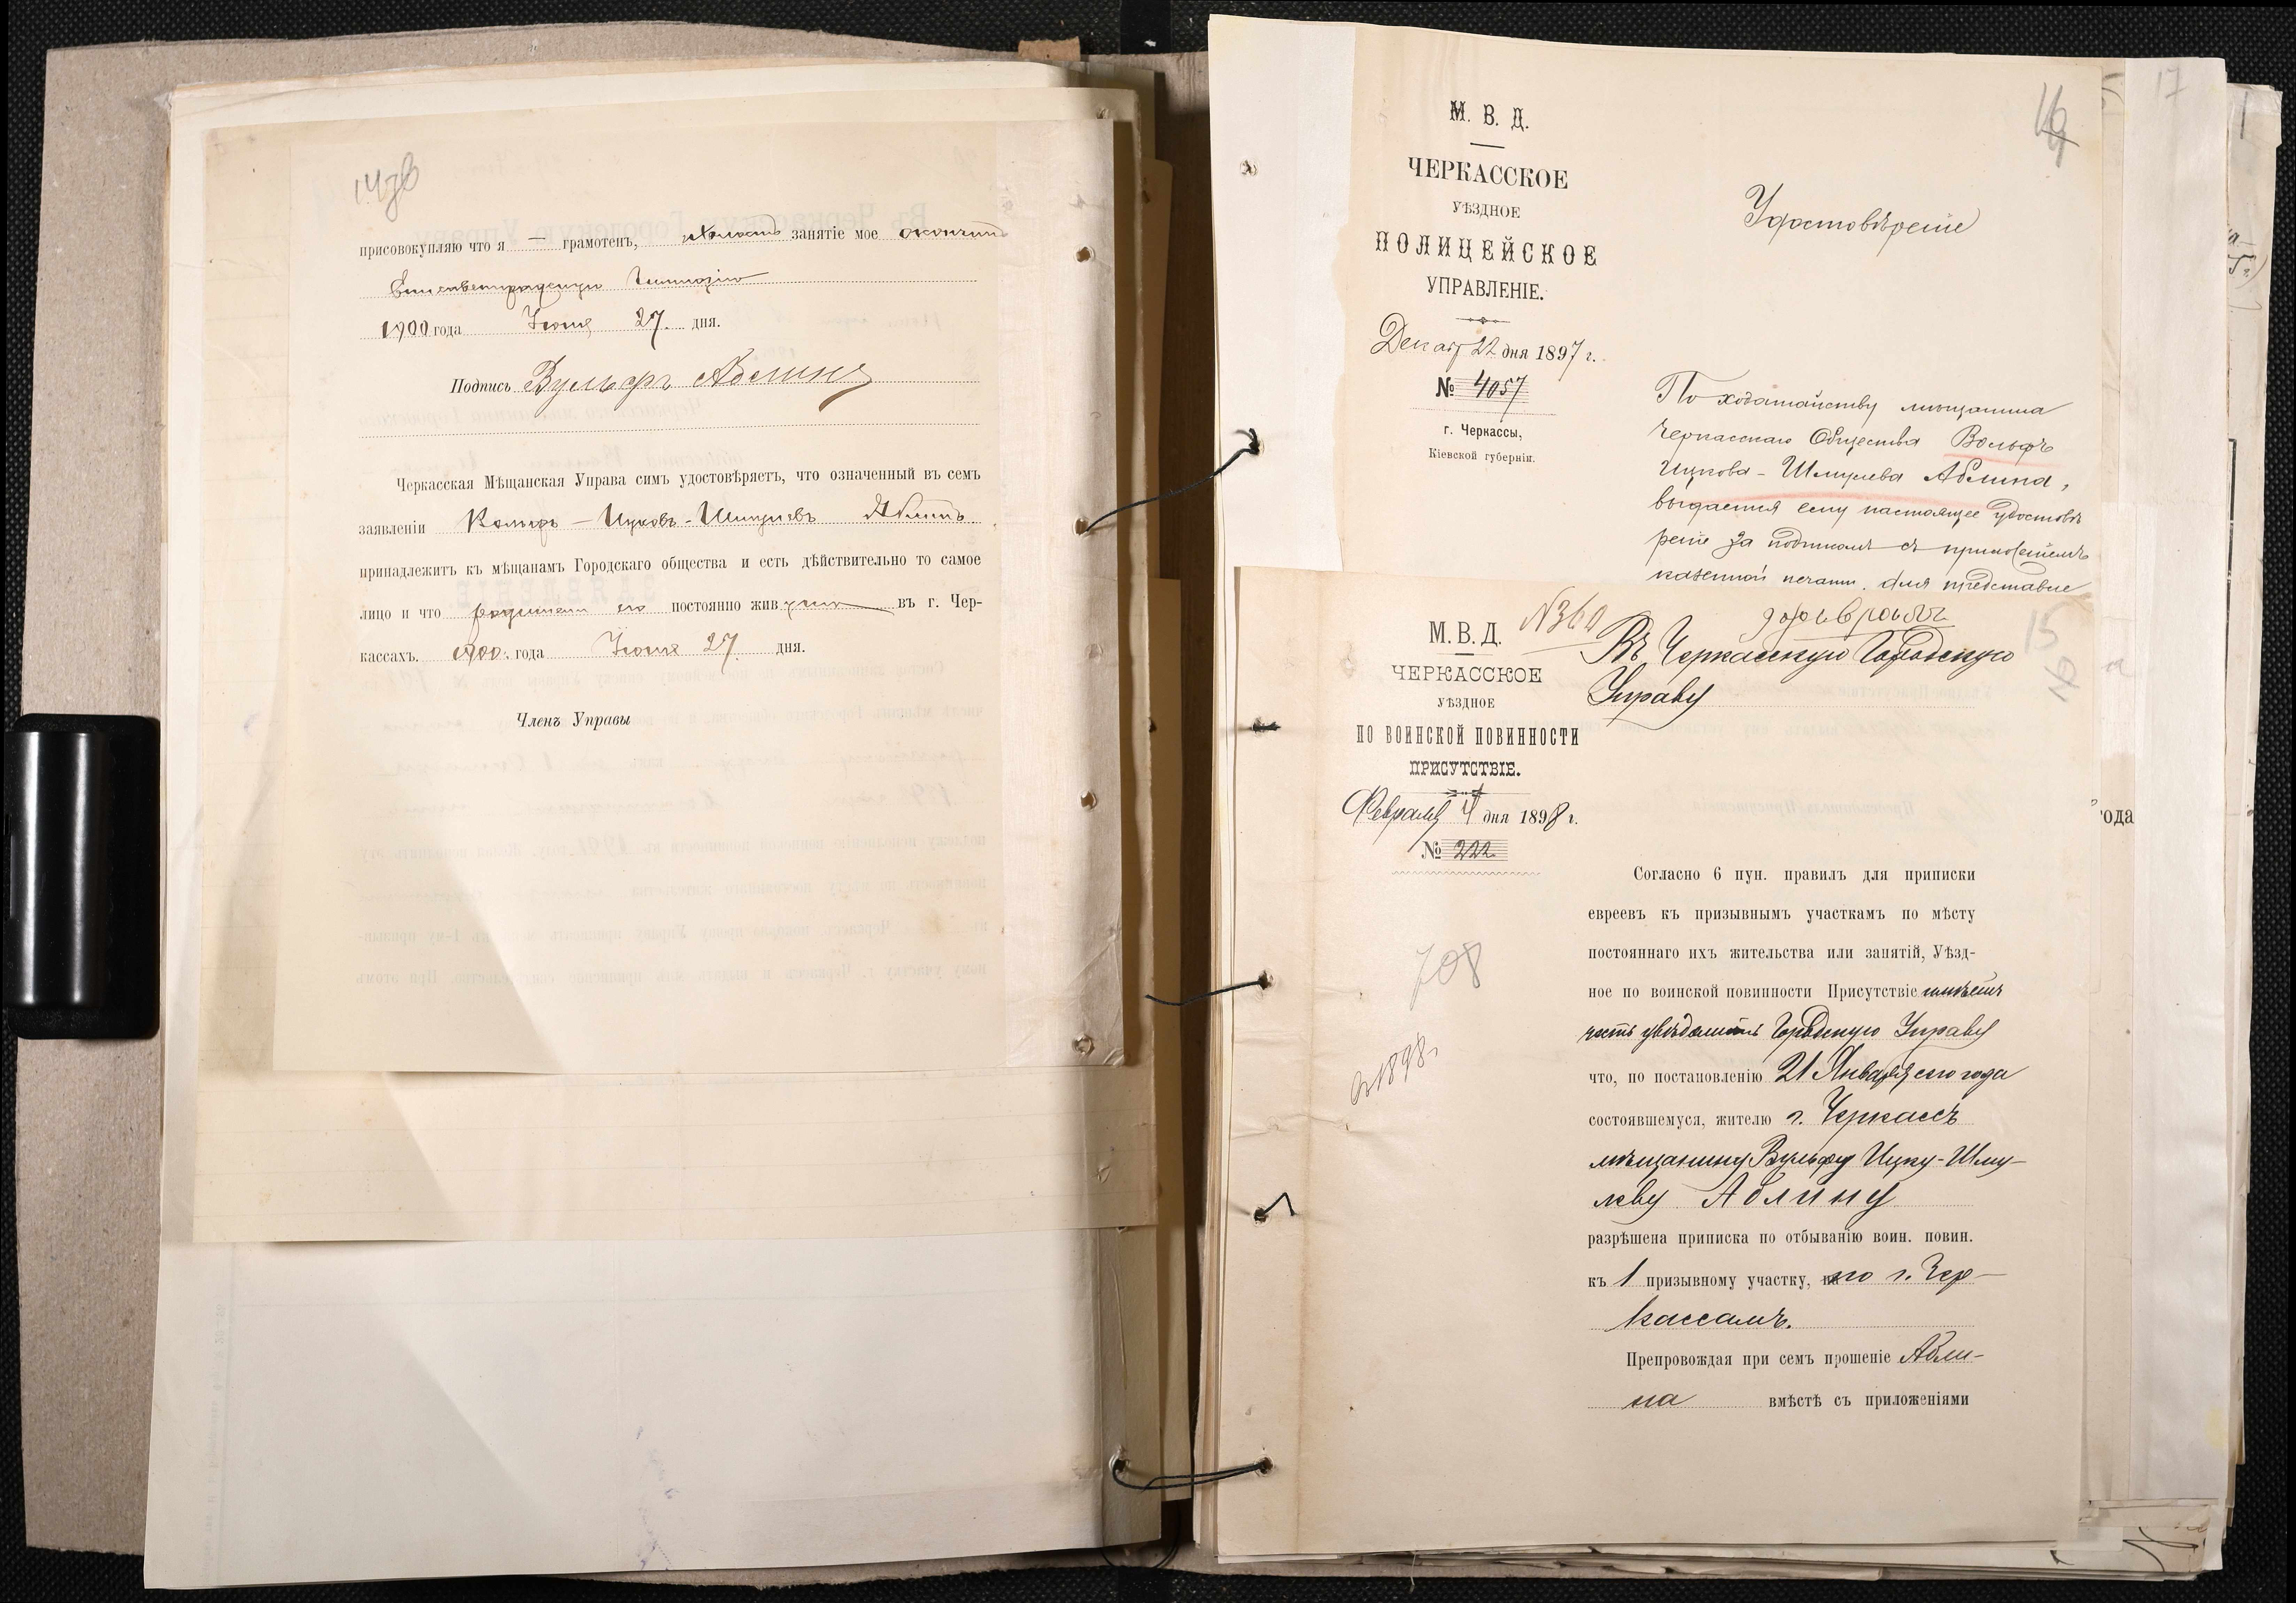 14об
присовокупляю что я — грамотенъ, холостъ занятіе мое окончилъ
Елисаветградскую Гимназію
1900 года Іюня 27 дня.
Подпись Вульфъ Аблинъ
Черкасская Мѣщанская Управа симъ удостовѣряетъ, что означенный въ семъ
заявленіи Вольфъ - Ицковъ - Шмулевъ Аблинъ
принадлежитъ къ мѣщанамъ Городскаго общества и есть дѣйствительно то самое
лицо и что родители его постоянно жив въ г. Чер-
кассахъ. 1900 года Іюня 27 дня.
Членъ Управы
М. В. Д.
ЧЕРКАССКОЕ
УѢЗДНОЕ
ПОЛИЦЕЙСКОЕ
УПРАВЛЕНІЕ.
Декабр 22 дня 1897 г.
№ 4057
г. Черкассы,
Кіевской губерніи.
16
17
Удостовѣреніе
По ходатайству мѣщанина
Черкасскаго Общества Вольфъ
Ицкова - Шмулева Аблина,
выдается ему настоящее удостовѣ
реніе за подписью съ приложеніемъ
казенной печати, для представле
М. В. Д.
ЧЕРКАССКОЕ
УѢЗДНОЕ
ПО ВОИНСКОЙ ПОВИННОСТИ
ПРИСУТСТВІЕ.
Февраля 4 дня 1898 г.
№ 222
N360
15
Въ Черкасскую Городскую
Управу
708
1898
Согласно 6 пун. правилъ для приписки
евреевъ къ призывнымъ участкамъ по мѣсту
постояннаго ихъ жительства или занятій, Уѣзд-
ное по воинской повинности Присутствіе имѣетъ
честь увѣдомить Городскую Управу
что, по постановленію 21 Января сего года
состоявшемуся, жителю г. Черкассъ
мѣщанину Вульфу Ицку-Шму-
леву Аблину
разрѣшена приписка по отбыванію воин. повин.
къ 1 призывному участку, по г. Чер-
кассамъ.
Препровождая при семъ прошеніе Абли-
на вмѣстѣ съ приложеніями
ода